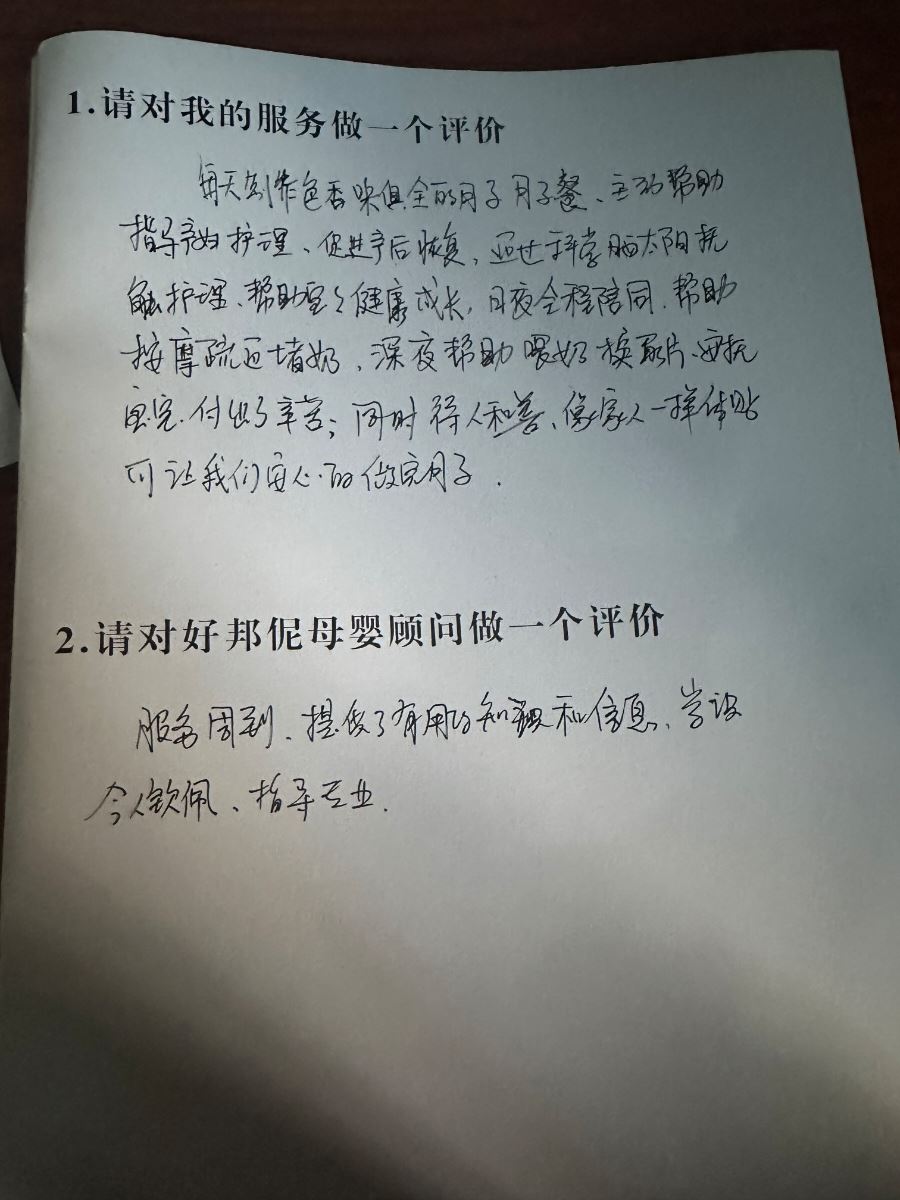 1.请对我的服务做一个评价
每天制作色香味俱全的月子月子餐、主动帮助
指导产妇护理、促进产后恢复,通过科学晒太阳抚
触护理、帮助宝宝健康成长,日夜全程陪同.帮助
按摩疏通堵奶、深夜帮助喂奶换尿片、安抚
宝宝.付出了辛苦;同时待人和善、像家人一样体贴
可让我们安心的做完月子.
2.请对好邦伲母婴顾问做一个评价
服务周到、提供了有用的知识和信息、学识
令人钦佩、指导专业.